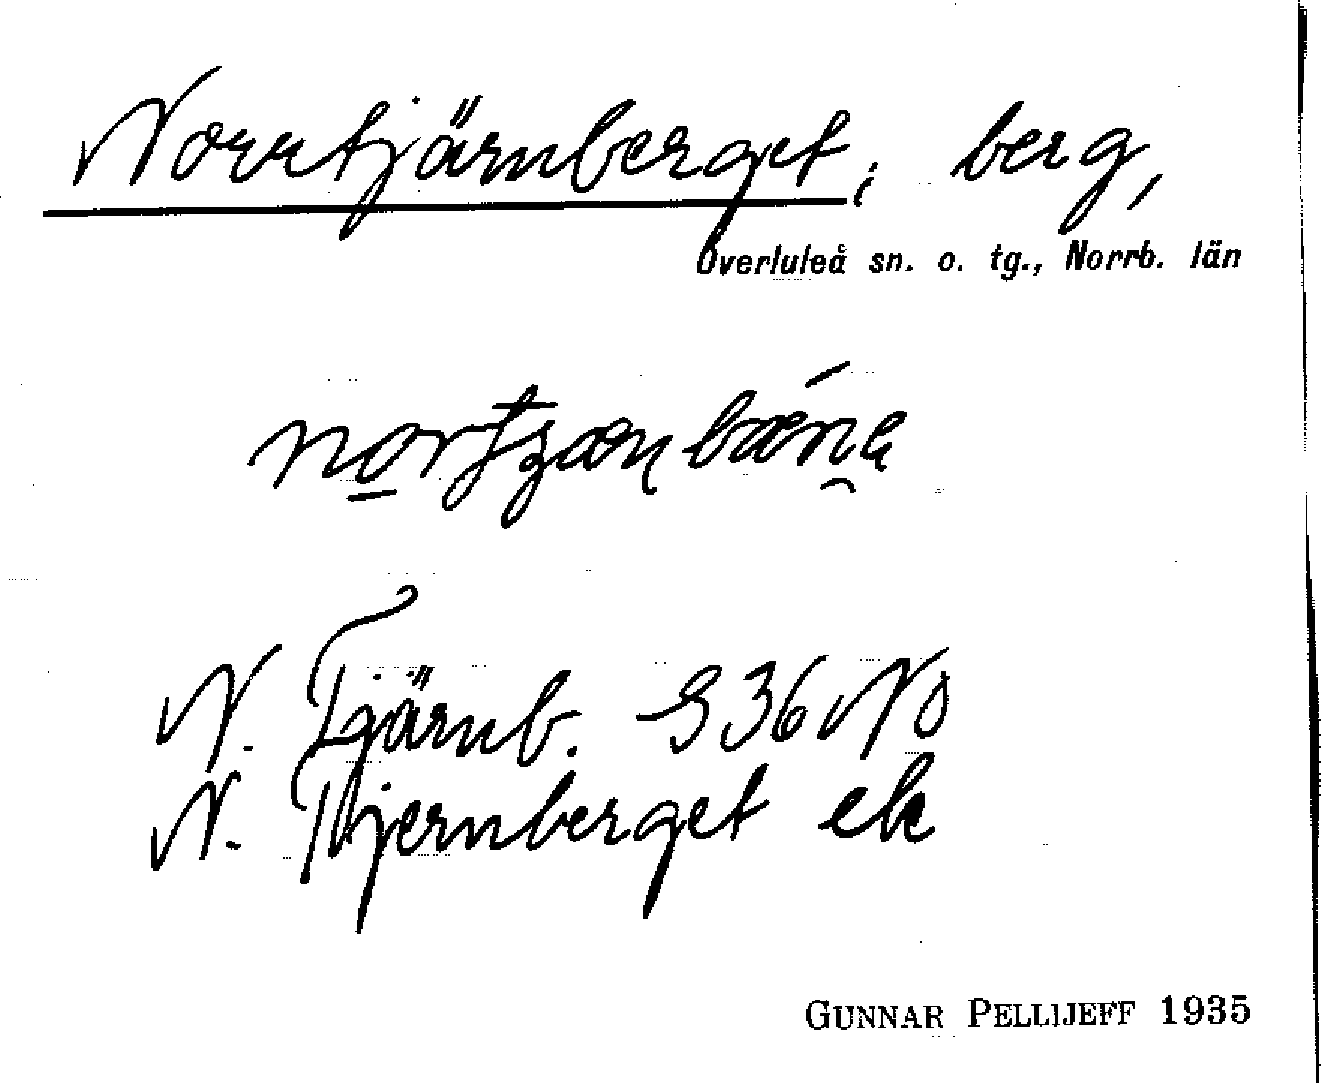 Norrtjärnberget; berg,
Överluleå sn. o. tg., Norrb. län
N. Tjärnb. S 36 NO
N. Tjernberget ek
GUNNAR PELLIJEFF 1935